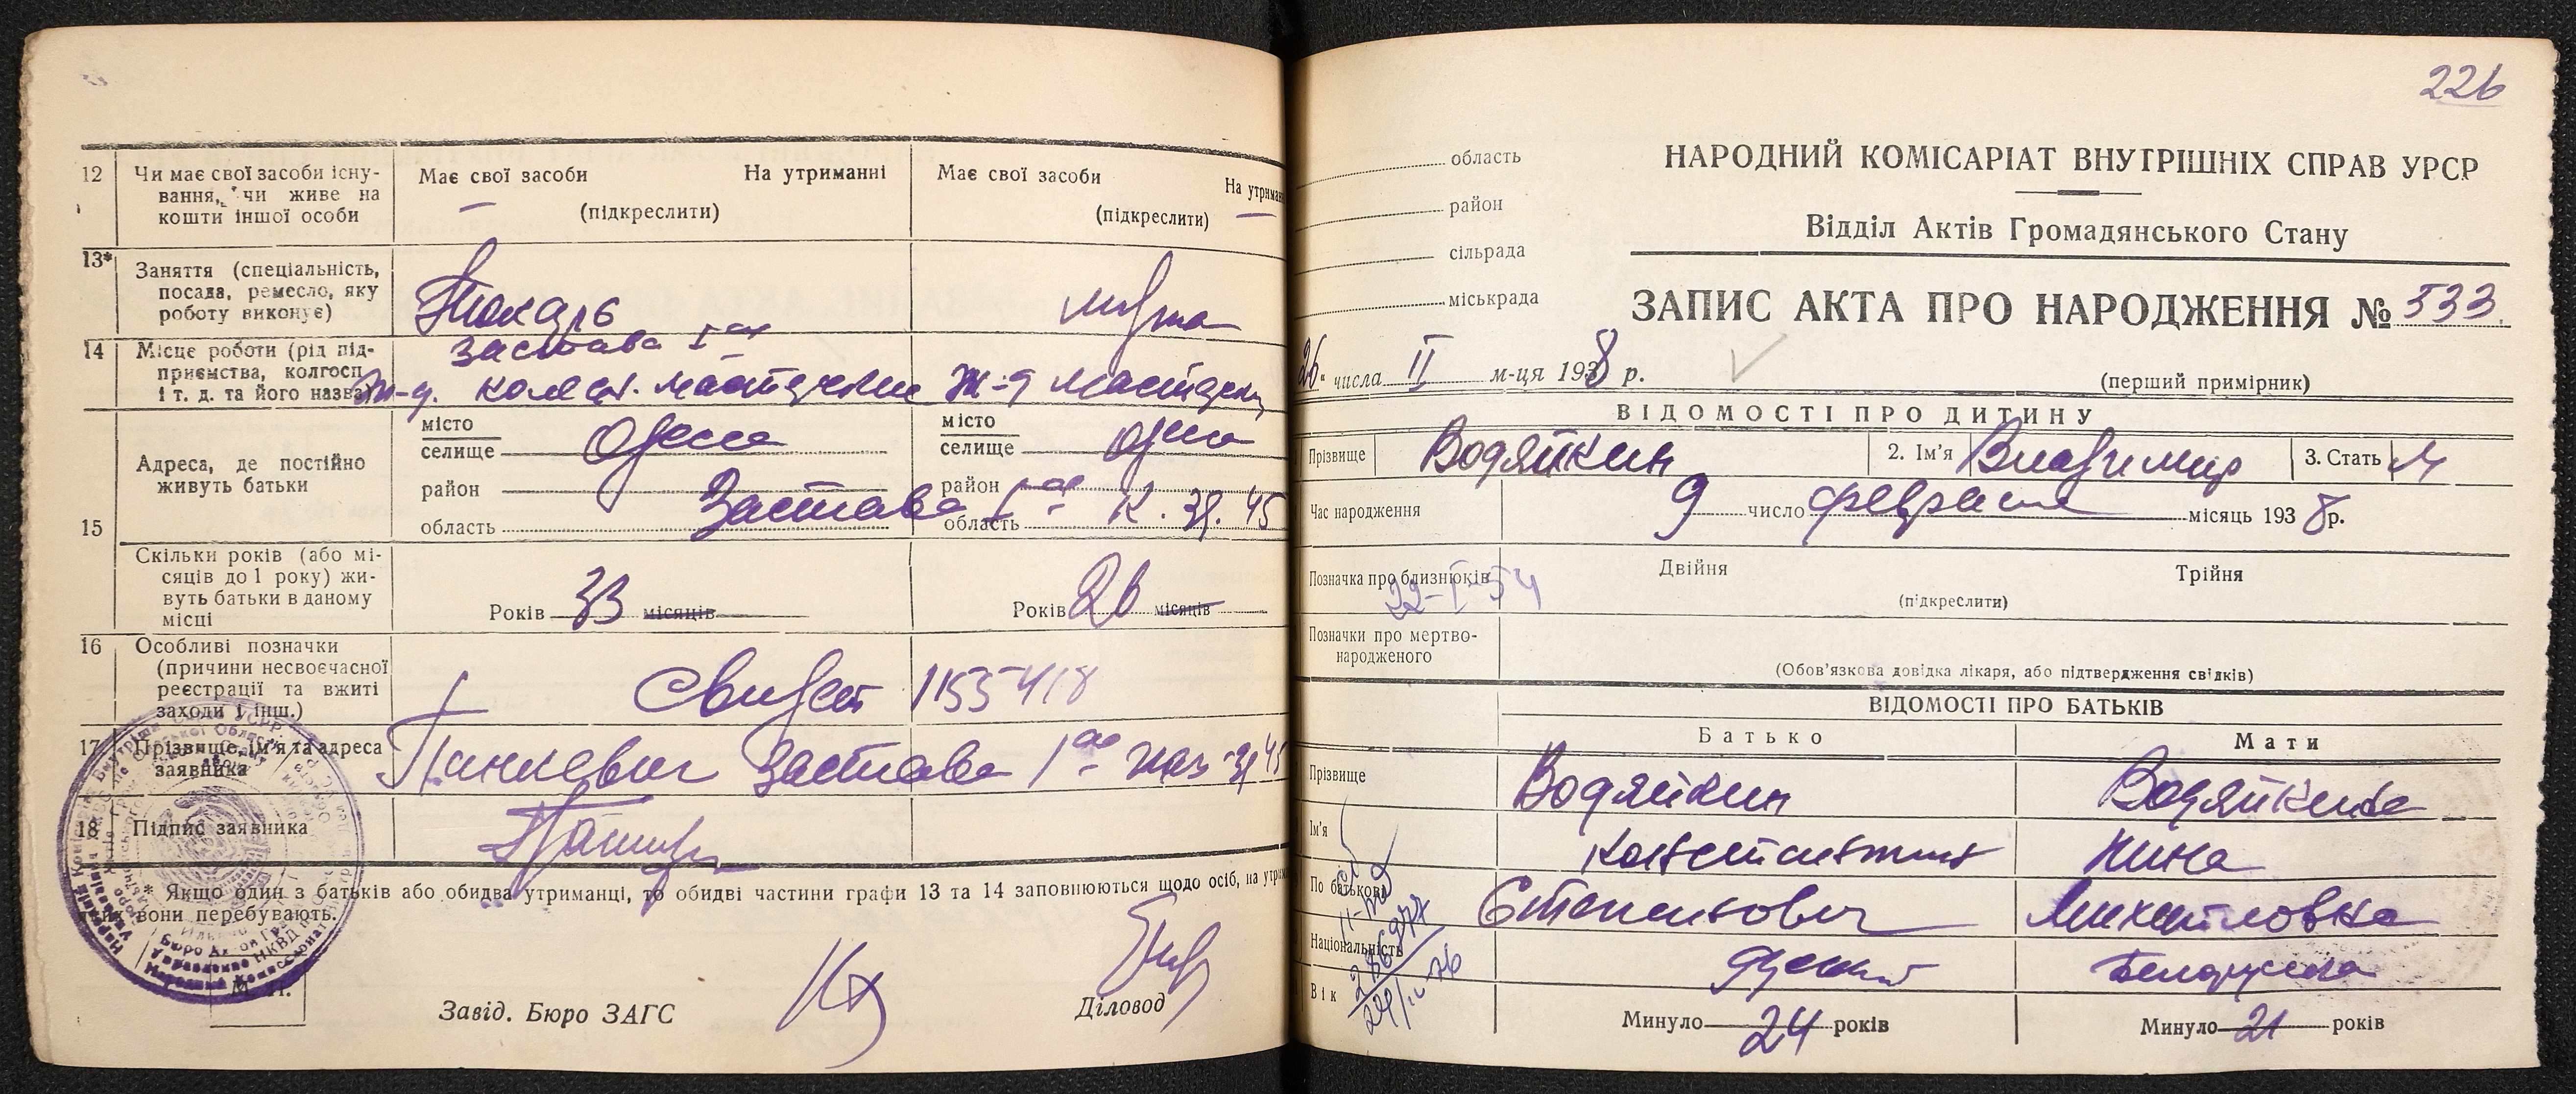 12 Чи має свої засоби існу-
вання, чи живе на
кошти іншої особи
Має свої засоби На утриманні
(підкреслити)
Має свої засоби
На утриман
(підкреслити)
13* Заняття (спеціальність,
посада, ремесло, яку
роботу виконує)
Токарь
14 Місце роботи (рід під-
приємства, колгосп
і т. д. та його назва)
Застава Iая
Адреса, де постійно
живуть батьки
місто
селище Одесса
район
область
місто
селище Одесса
район
область
Застава Iая К. 31. 45
15 Скільки років (або мі-
сяців до 1 року) жи-
вуть батьки в даному
місці
Років 33 місяців
Років 26 місяців
16 Особливі позначки
(причини несвоєчасної
реєстрації та вжиті
заходи і інш.)
1155418
17 Прізвище, ім'я та адреса
заявника
Застава 1ая
18 Підпис заявника
* Якщо один з батьків або обидва утриманці, то обидві частини графи 13 та 14 заповнюються щодо осіб, на утрим
яких вони перебувають.
М. П.
Завід. Бюро ЗАГС
Діловод
226
область
район
сільрада
міськрада
НАРОДНИЙ КОМІСАРІАТ ВНУТРІШНІХ СПРАВ УРСР
Відділ Актів Громадянського Стану
ЗАПИС АКТА ПРО НАРОДЖЕННЯ № 533
26 " числа II м-ця 1938 р.
(перший примірник)
ВІДОМОСТІ ПРО ДИТИНУ
Прізвище Водяйкин 2. Ім'я Владимир 3. Стать М
Час народження 9 число февраля місяць 1938 р.
Позначка про близнюків Двійня Трійня
22-I-54
(підкреслити)
Позначки про мертво-
народженого
(Обов'язкова довідка лікаря, або підтвердження свідків)
ВІДОМОСТІ ПРО БАТЬКІВ
Батько Мати
Прізвище Водяйкин Водяйкина
Ім'я Константин Нина
По батькові Степанович Михайловна
Національність Русский Белоруска
Вік Минуло 24 років Минуло 21 років